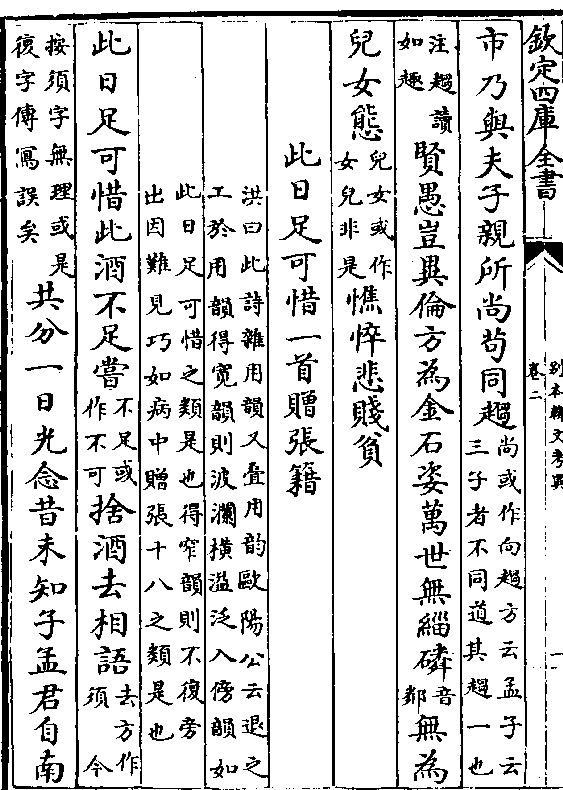 欽定四庫全書
別本韓文考異
卷二
一
市乃與夫子親所尚苟同趨尚或作向趨方云孟子云
三子者不同道其趨一也
注趨讀
如趣賢愚豈異倫方為金石姿萬世無緇磷音
鄰無為
兒女態兒女或作
女兒非是憔悴悲賤貧
此日足可惜一首贈張籍
洪曰此詩雜用韻又疊用韵歐陽公云退之
工於用韻得寛韻則波瀾橫溢泛入傍韻如
此日足可惜之類是也得窄韻則不復旁
出因難見巧如病中贈張十八之類是也
此日足可惜此酒不足嘗不足或
作不可捨酒去相語去方作
須今
按須字無理或是
復字傳寫誤矣共分一日光念昔未知子孟君自南